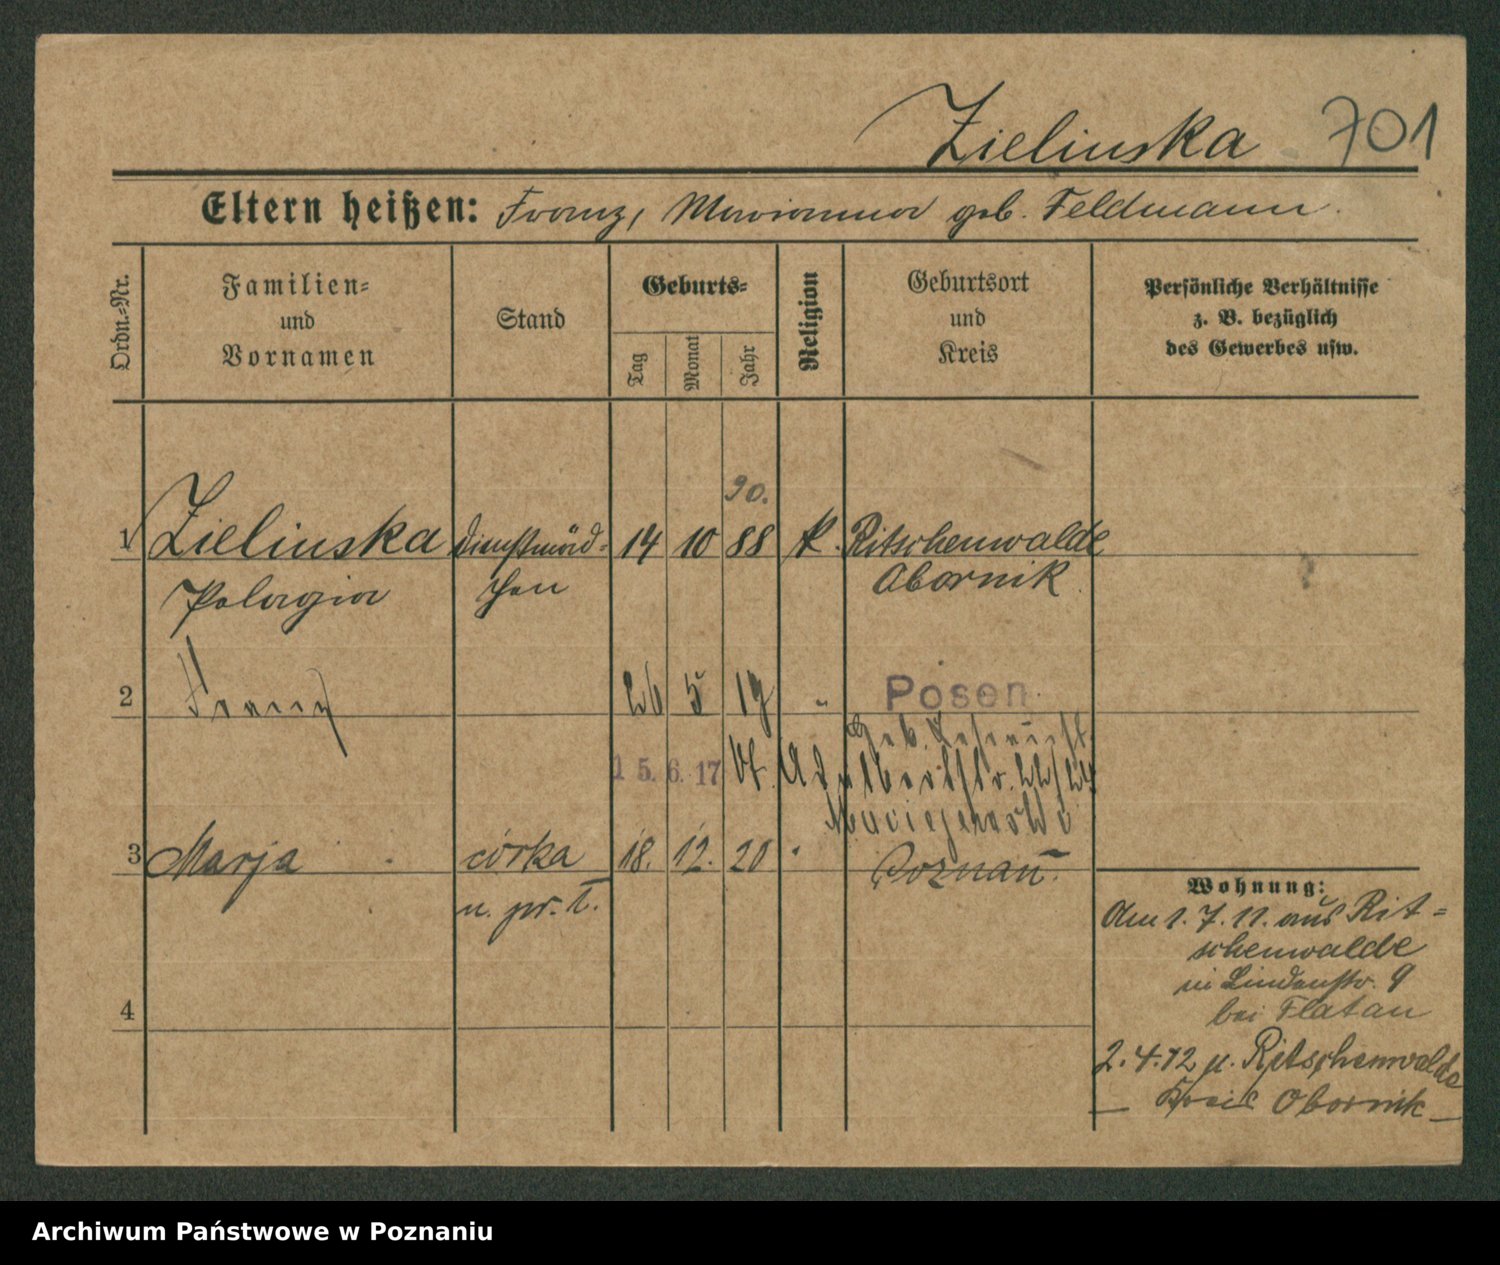 Zielinska 701
Eltern heißen: Franz, Marianna geb. Feldmann.
Ordn.-Nr.
Familien-
und
Vornamen
Stand
Geburts-
Tag
Monat
Jahr
Religion
Geburtsort
und
Kreis
Persönliche Verhältnisse
z. B. bezüglich
des Gewerbes usw.
90.
1 Zielinska Dienstmäd- 14 10 88 k. Ritschenwalde
Pelagia chen Obornik.
2 Franz 26 5 17 " Posen
Geb.
15.6.17
3 Marja córka 18. 12. 20 " Poznań.
n. pr.
4
Wohnung:
Am 1. 7. 11. aus Rit-
schenwalde
in Lindenstr. 9
bei Flatau
2.4.12 n. Ritschenwalde
Kreis Obornik
Archiwum Państwowe w Poznaniu